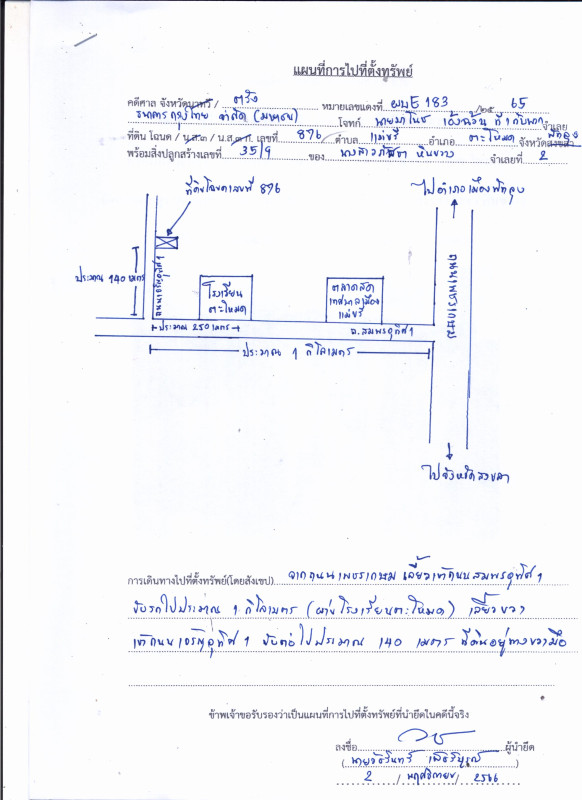 แผนที่การไปที่ตั้งทรัพย์
คดีศาล จังหวัดนาทวี / ตรัง หมายเลขแดงที่ ผบE 183 /๒๕ 65
ธนาคารกรุงไทย จำกัด (มหาชน) โจทก์ นายมาโนช ที่ 1 กับพวก จำเลย
ที่ดิน โฉนด / น.ส.๓ / น.ส.๓ ก. เลขที่ 876 ตำบล แม่ขรี อำเภอ ตะโหมด จังหวัดสงขลา พัทลุง
พร้อมสิ่งปลูกสร้างเลขที่ 35/9 ของ นางสาว หินขวาง จำเลยที่ 2
ที่ดินโฉนดเลขที่ 876
ไปอำเภอเมืองพัทลุง
ประมาณ 140 เมตร
ถนนเจริญอุทิศ 1
โรงเรียน
ตะโหมด
ตลาดสด
เทศบาลเมือง
แม่ขรี
ถนนเพชรเกษม
ประมาณ 250 เมตร
ถ.สมพรอุทิศ 1
ประมาณ 1 กิโลเมตร
ไปจังหวัดสงขลา
การเดินทางไปที่ตั้งทรัพย์(โดยสังเขป) จากถนนเพชรเกษม เลี้ยวเข้าถนนสมพรอุทิศ 1
ขับรถไปประมาณ 1 กิโลเมตร (ผ่านโรงเรียนตะโหมด) เลี้ยวขวา
เข้าถนนเจริญอุทิศ 1 ขับต่อไปประมาณ 140 เมตร ที่ดินอยู่ทางขวามือ
ข้าพเจ้าขอรับรองว่าเป็นแผนที่การไปที่ตั้งทรัพย์ที่นำยึดในคดีนี้จริง
ลงชื่อ ผู้นำยึด
( นายวัชรินทร์ )
2 / พฤศจิกายน / 2566